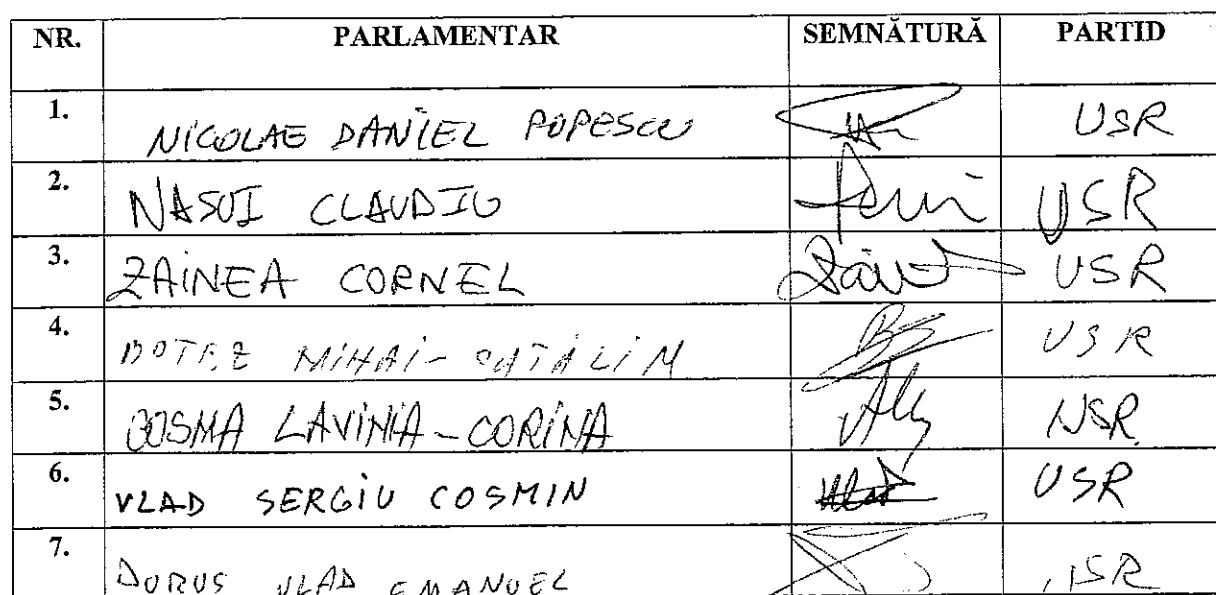 NR. PARLAMENTAR SEMNĂTURĂ PARTID
1. NICOLAE DANIEL POPESCU USR
2. NASUI CLAUDIU USR
3. ZAINEA CORNEL USR
4. BOTEZ MIHAI-CATALIN USR
5. COSMA LAVINIA-CORINA USR
6. VLAD SERGIU COSMIN USR
7. DURUS VLAD EMANUEL USR